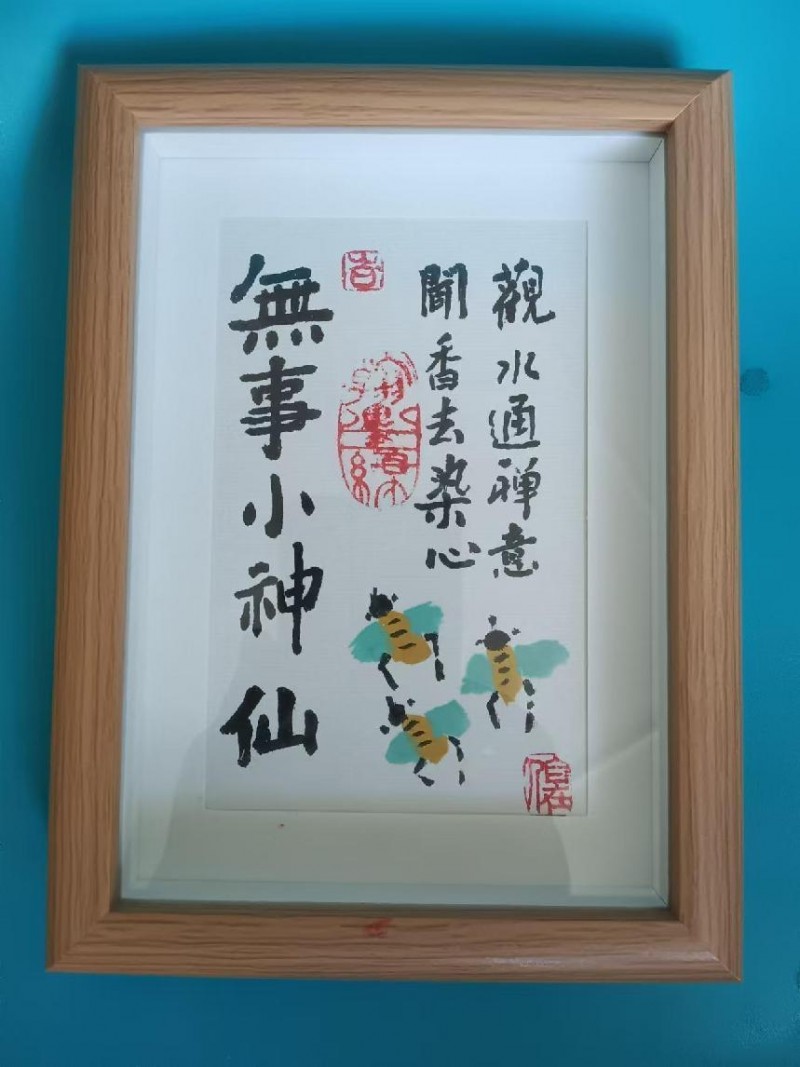 觀水通禅意
聞香去染心
無事小神仙
吉